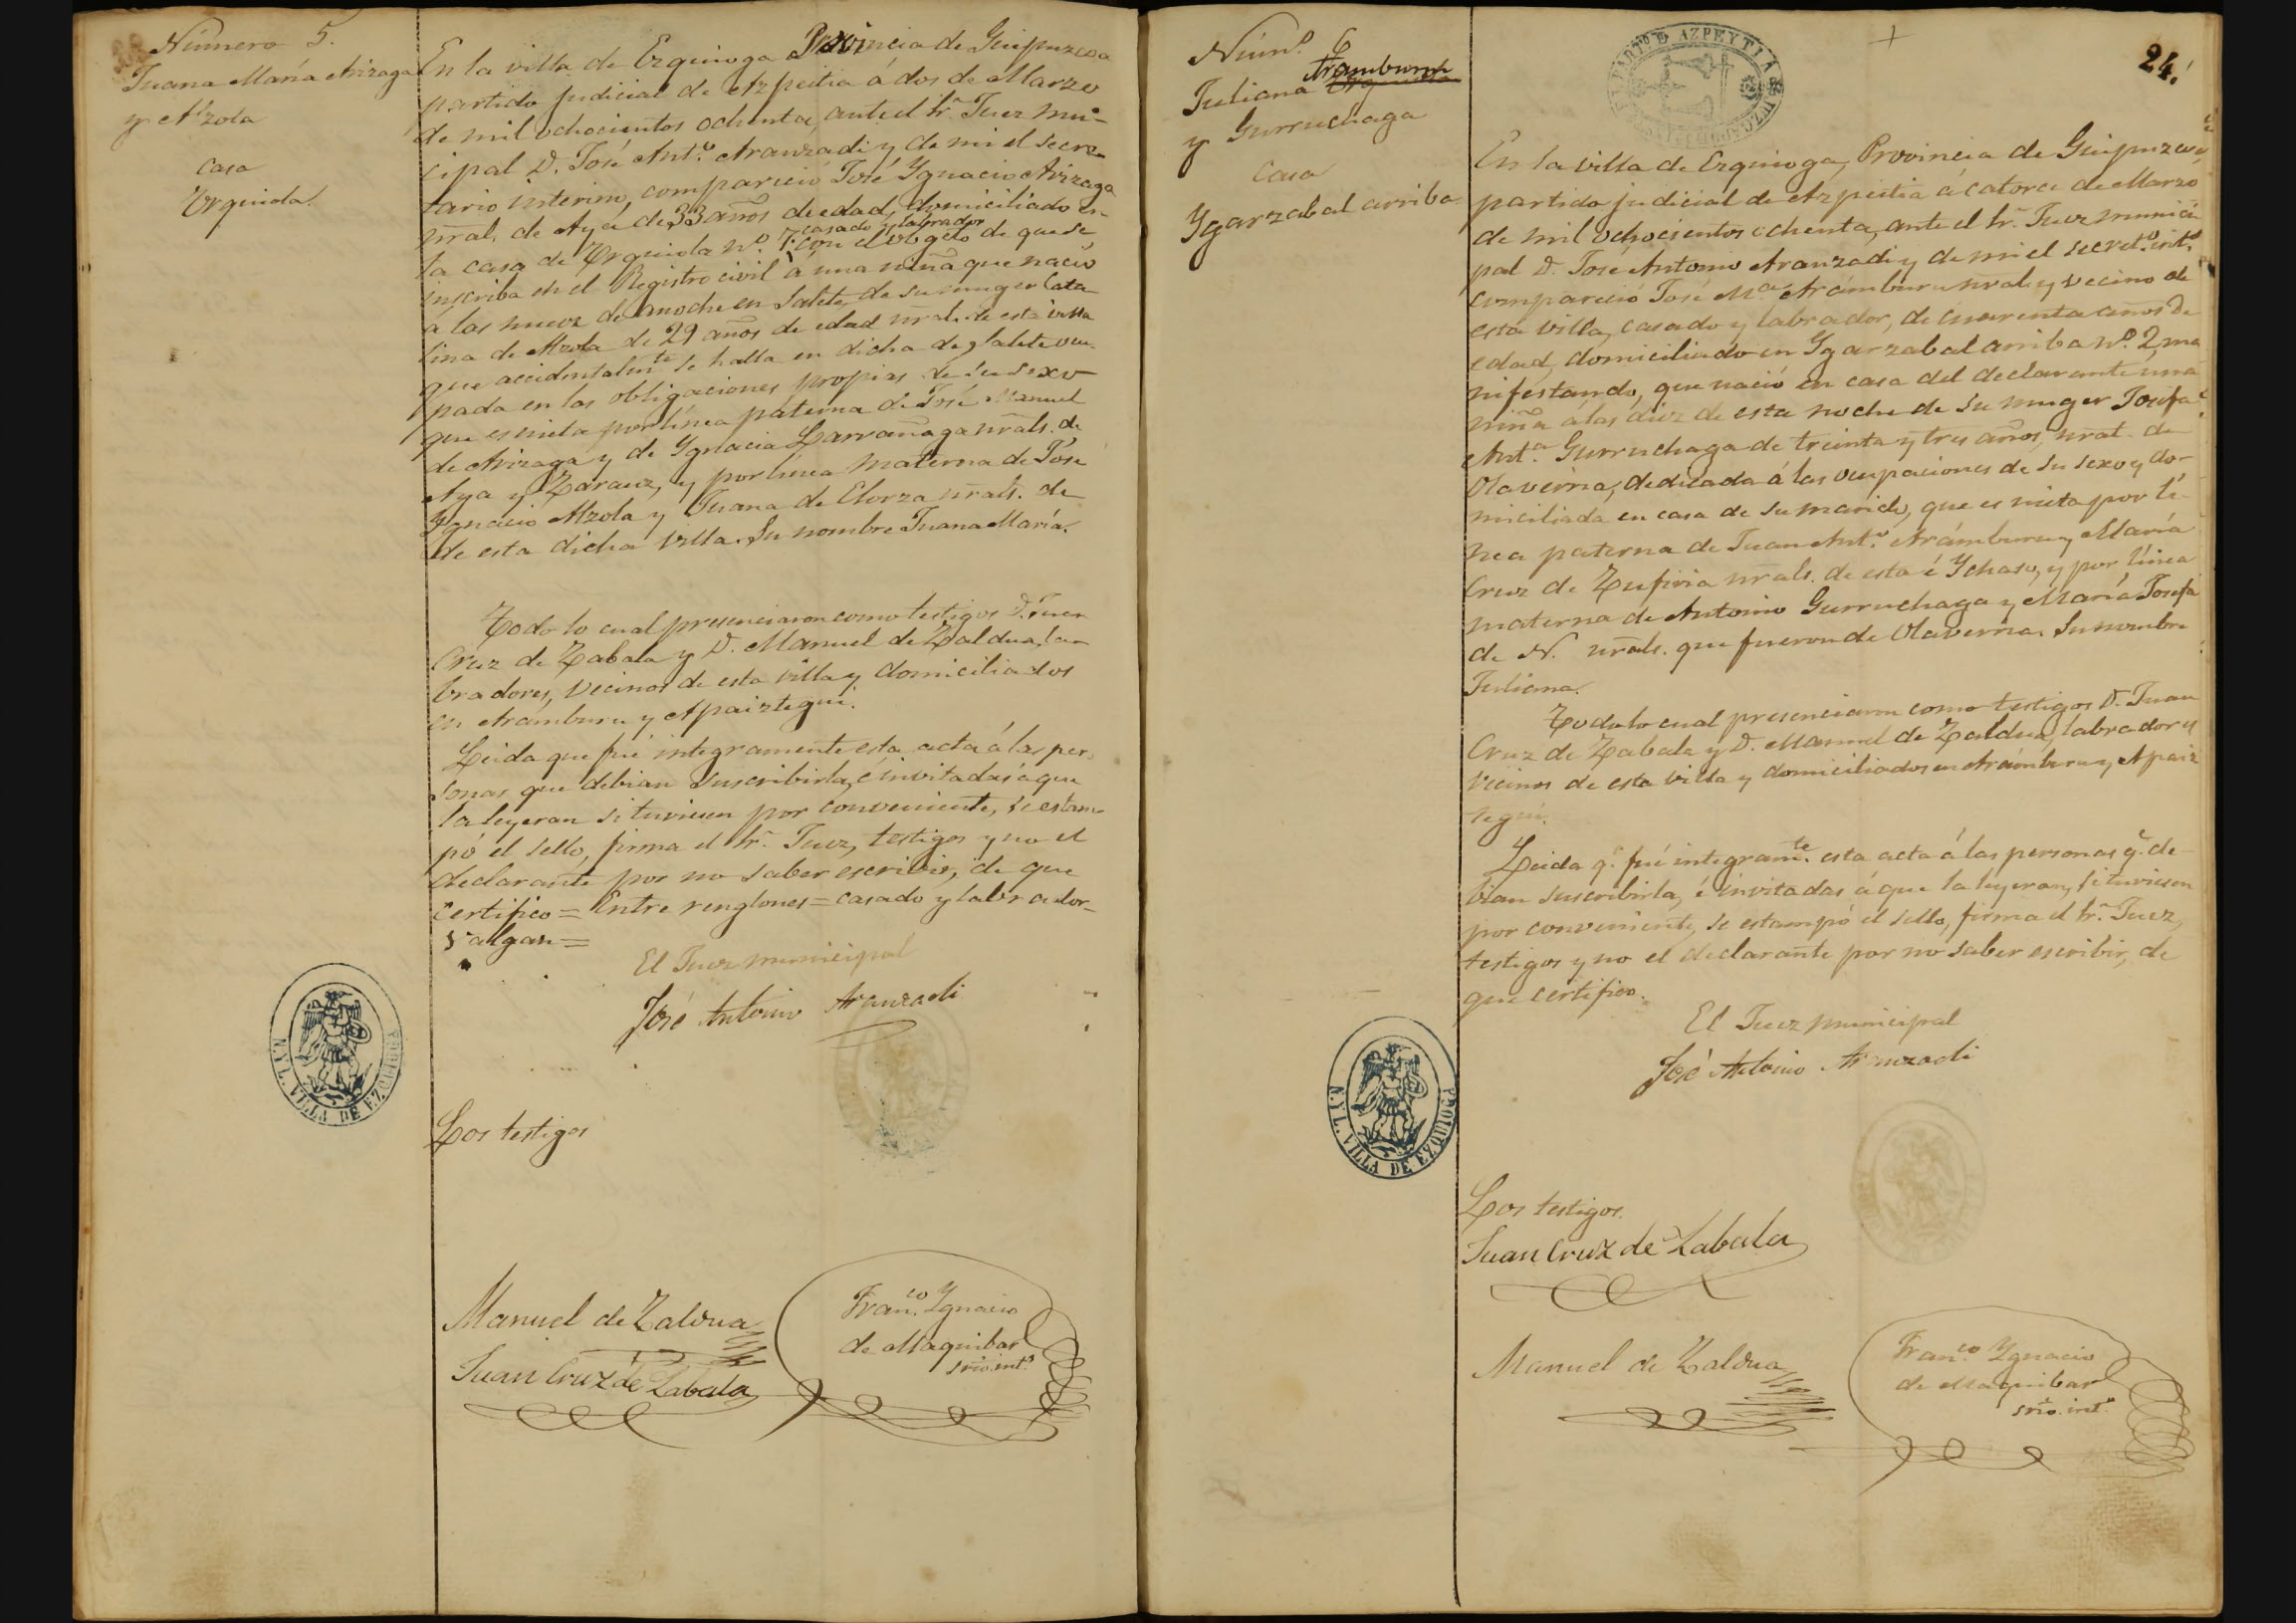 Número 5.
Juana María Arizaga
y Alzola
Casa
Urquiola.
En la villa de Ezquioga Provincia de Guipuzcoa
partido judicial de Azpeitia á dos de Marzo
de mil ochocientos ochenta, ante el Sr. Juez mu-
cipal D. José Antº. Aranzadi y de mi el secre-
tario interino, compareció José Ygnacio Arizaga
nral. de Aya de 33 años de edad, domiciliado en
casado y labrador
la casa de Urquiola nº. 7. con el obgeto de que se
inscriba en el Registro civil á una niña que nació
á las nueve de anoche en Salete, de su muger Cata-
lina de Alzola de 29 años de edad nral. de esta villa
que accidentalmte. se halla en dicha de Salete ocu-
pada en las obligaciones propias de su sexo
que es nieta por línea paterna de José Manuel
de Arizaga y de Ygnacia Larrañaga nrals. de
Aya y Zarauz, y por línea materna de José
Ygnacio Alzola y Juana de Elorza nrals. de
de esta dicha villa. Su nombre Juana María.
Todo lo cual presenciaron como testigos D. Juan
Cruz de Zabala y D. Manuel de Zaldua, la-
bradores, vecinos de esta villa y domiciliados
en Arámburu y Apaiztegui.
Leida que fué integramente esta acta á las per-
sonas que debian suscribirla, é invitadas á que
la leyeran si tuviesen por conveniente, se estam-
pó el sello, firma el Sr. Juez, testigos y no el
declarante por no saber escribir, de que
certifico = Entre renglones = casado y labrador =
valgan =
El Juez municipal
José Antonio Aranzadi
N.Y L. VILLA DE EZQUIOGA
Los testigos
Manuel de Zaldua
Juan Cruz de Zabala
Franco. Ygnacio
de Maquibar
srio. intº.
Númº. 6
Aramburu
Juliana
y Gurruchaga
Casa
Ygarzabal arriba
PARTº DE AZPEYTIA
24.
En la villa de Ezquioga, Provincia de Guipuzcoa,
partido judicial de Azpeitia á catorce de Marzo
de mil ochocientos ochenta, ante el Sr. Juez munici-
pal D. José Antonio Aranzadi y de mi el secretº. intº.
compareció José Mª. Arámburu nral. y vecino de
esta villa, casado y labrador, de cuarenta años de
edad, domiciliado en Ygarzabal arriba nº. 2, ma-
nifestando, que nació en casa del declarante una
niña á las diez de esta noche de su muger Josefa
Antª. Gurruchaga de treinta y tres años, nral. de
Olaverria, dedicada á las ocupaciones de su sexo y do-
miciliada en casa de su marido, que es nieta por lí-
nea paterna de Juan Antº. Arámburu y María
Cruz de Zufiria nrals. de esta é Ychaso, y por línea
materna de Antonio Gurruchaga y María Josefa
de N. nrals. que fueron de Olaverria. Su nombre
Juliana.
Todo lo cual presenciaron como testigos D. Juan
Cruz de Zabala y D. Manuel de Zaldua, labradores
vecinos de esta villa y domiciliados en Arámburu y Apaiz
tegui.
Leida q. fué integramte. esta acta á las personas q. de-
bian suscribirla, é invitadas á que la leyeran, si tuviesen
por conveniente, se estampó el sello, firma el Sr. Juez,
testigos y no el declarante por no saber escribir, de
que certifico.
El Juez municipal
José Antonio Aranzadi
N.Y L. VILLA DE EZQUIOGA
Los testigos.
Juan Cruz de Zabala
Manuel de Zaldua
Franco. Ygnacio
de Maquibar
srio. intº.